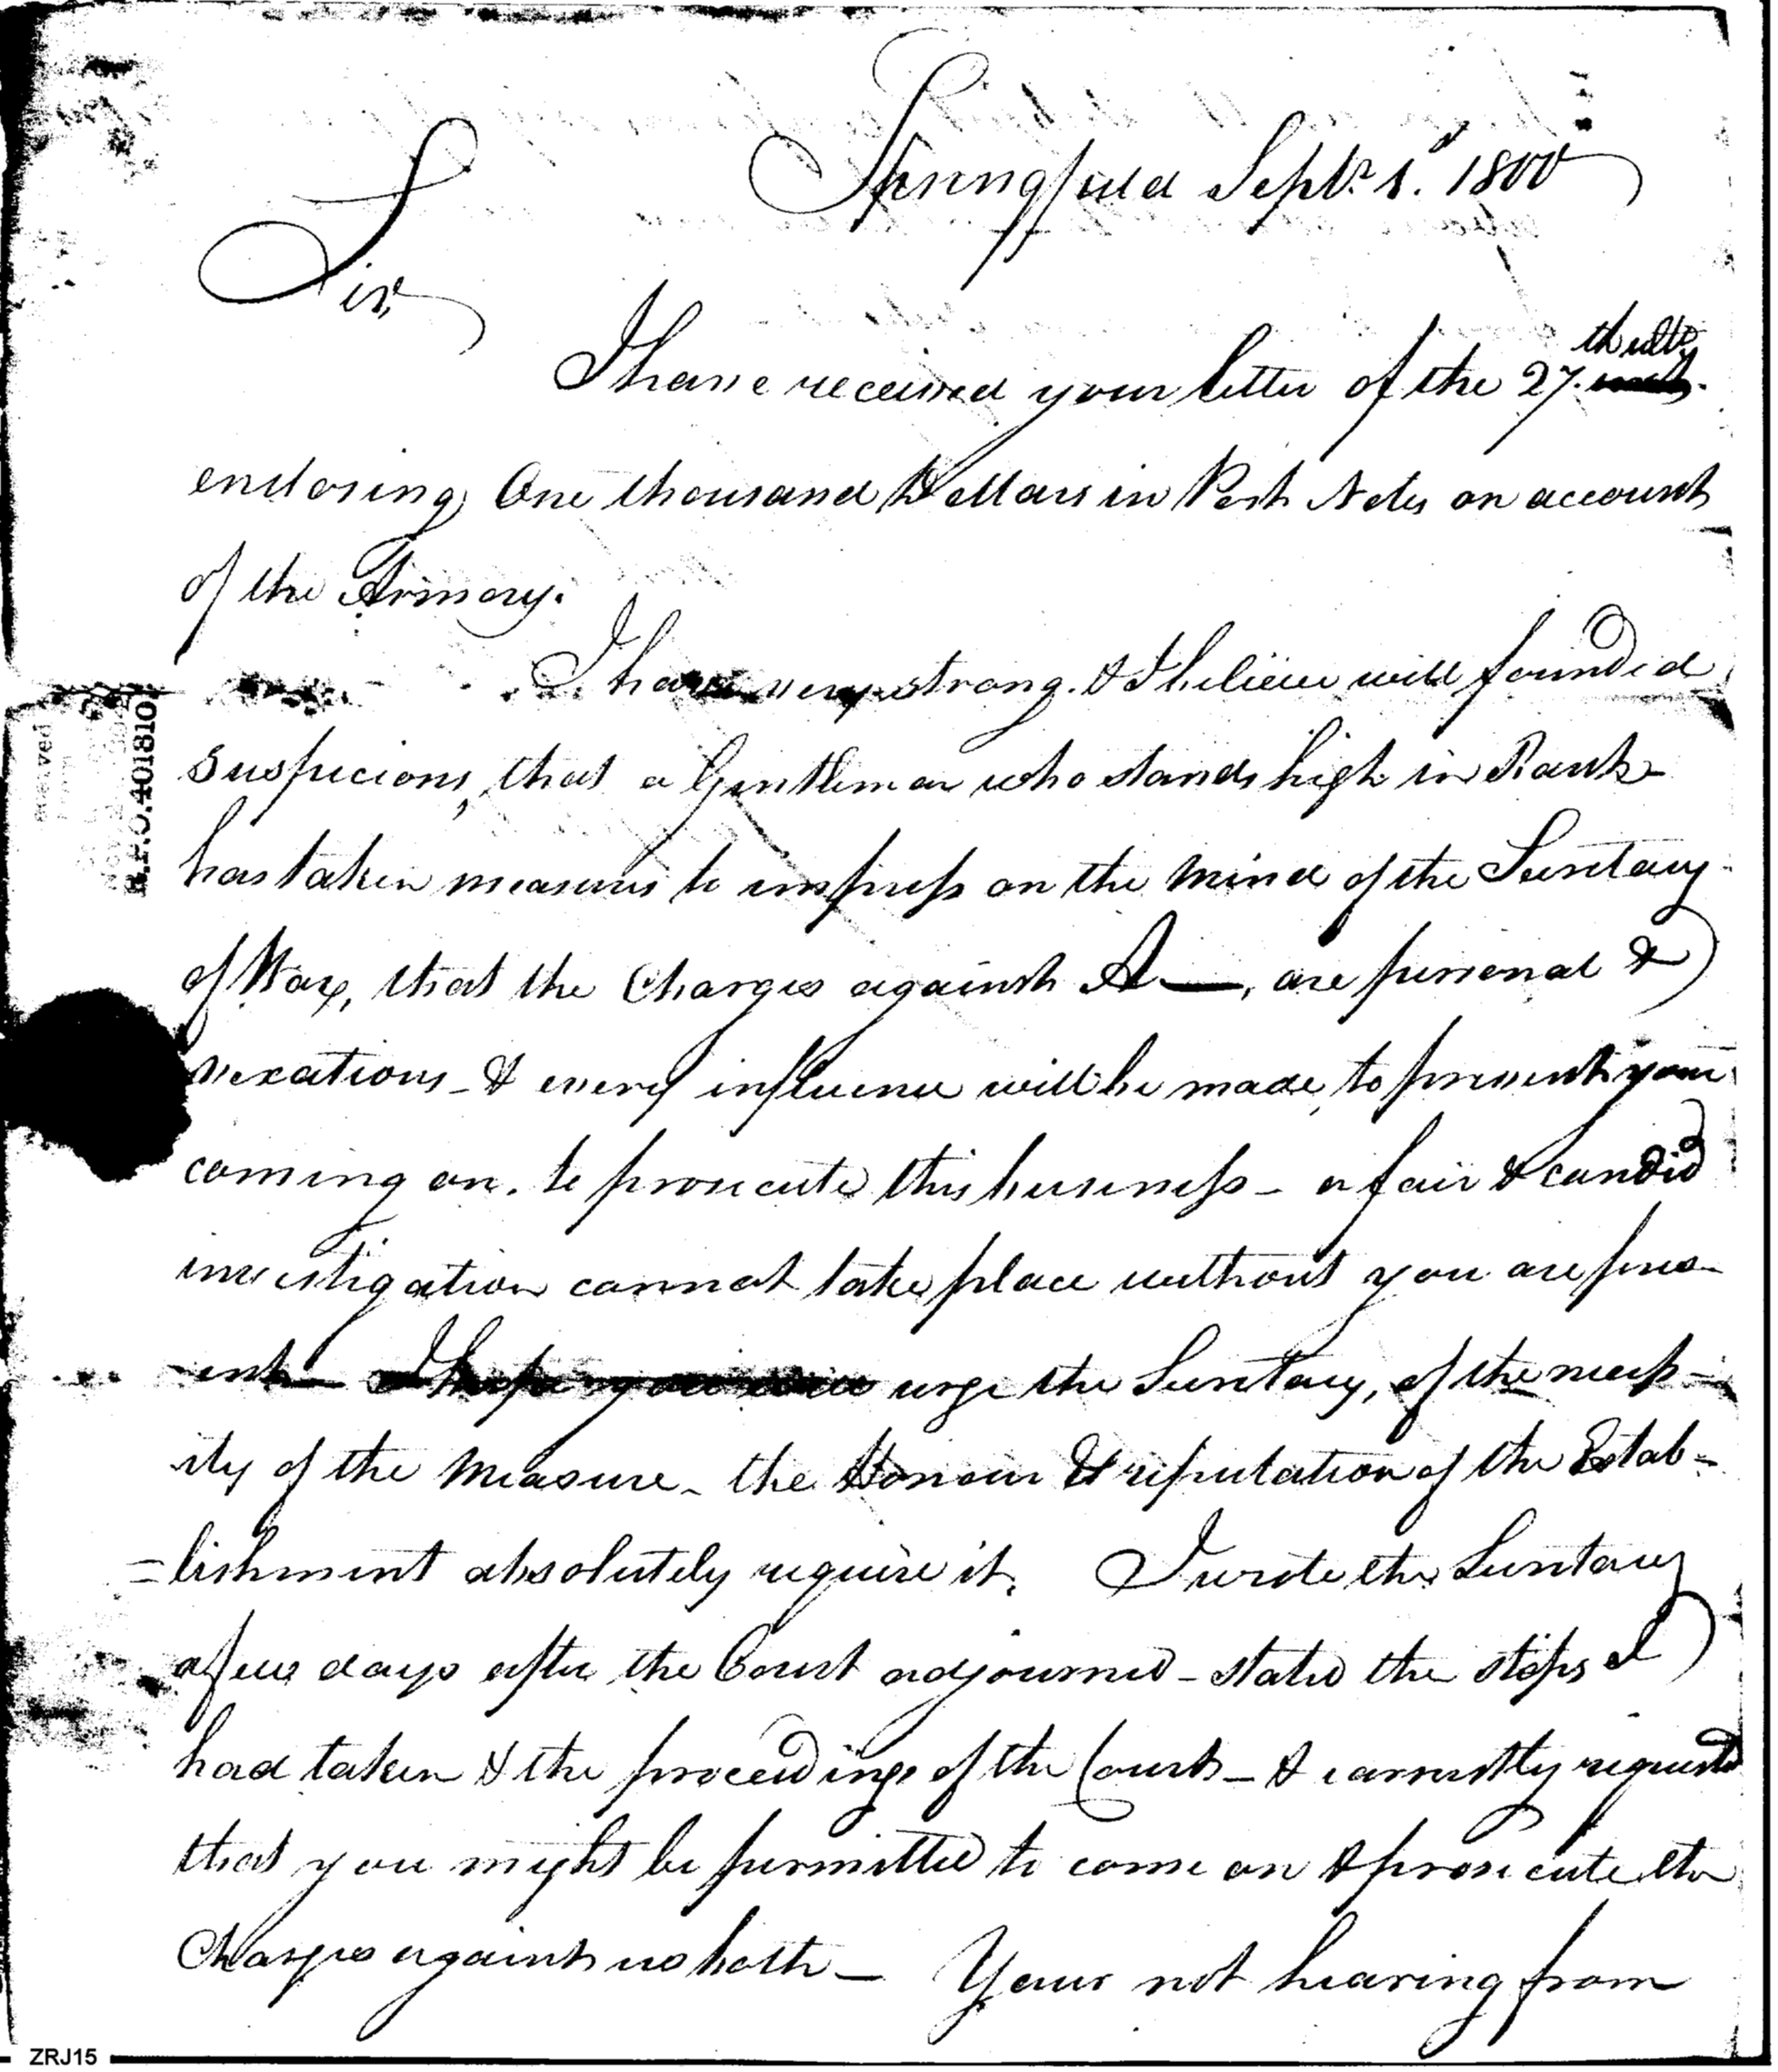 Springfield Sept.r 1.st 1800
Sir,
I have received your letter of the 27. th ulto
enclosing One thousand Dollars in Post Notes on account
of the Armory.
I have very strong & I believe well founded
suspicions, that a Gentleman who stands high in Rank
has taken measures to impress on the Mind of the Secretary
of War, that the Charges against A—, are personal &
vexatious – & every influence will be made, to prevent your
coming on. to prosecute this business – a fair & candid
investigation cannot take place without you are pres-
-ent – I hope you will urge the Secretary, of the necess-
ity of the Measure – the Honour & reputation of the Estab-
=lishment absolutely require it. I wrote the Secretary
a few days after the Court adjourned – stated the steps I
had taken & the proceedings of the Court – & earnestly requested
that you might be permitted to come on & prosecute the
Charges against us both – Your not hearing from
R.P.O.401810
ZRJ15